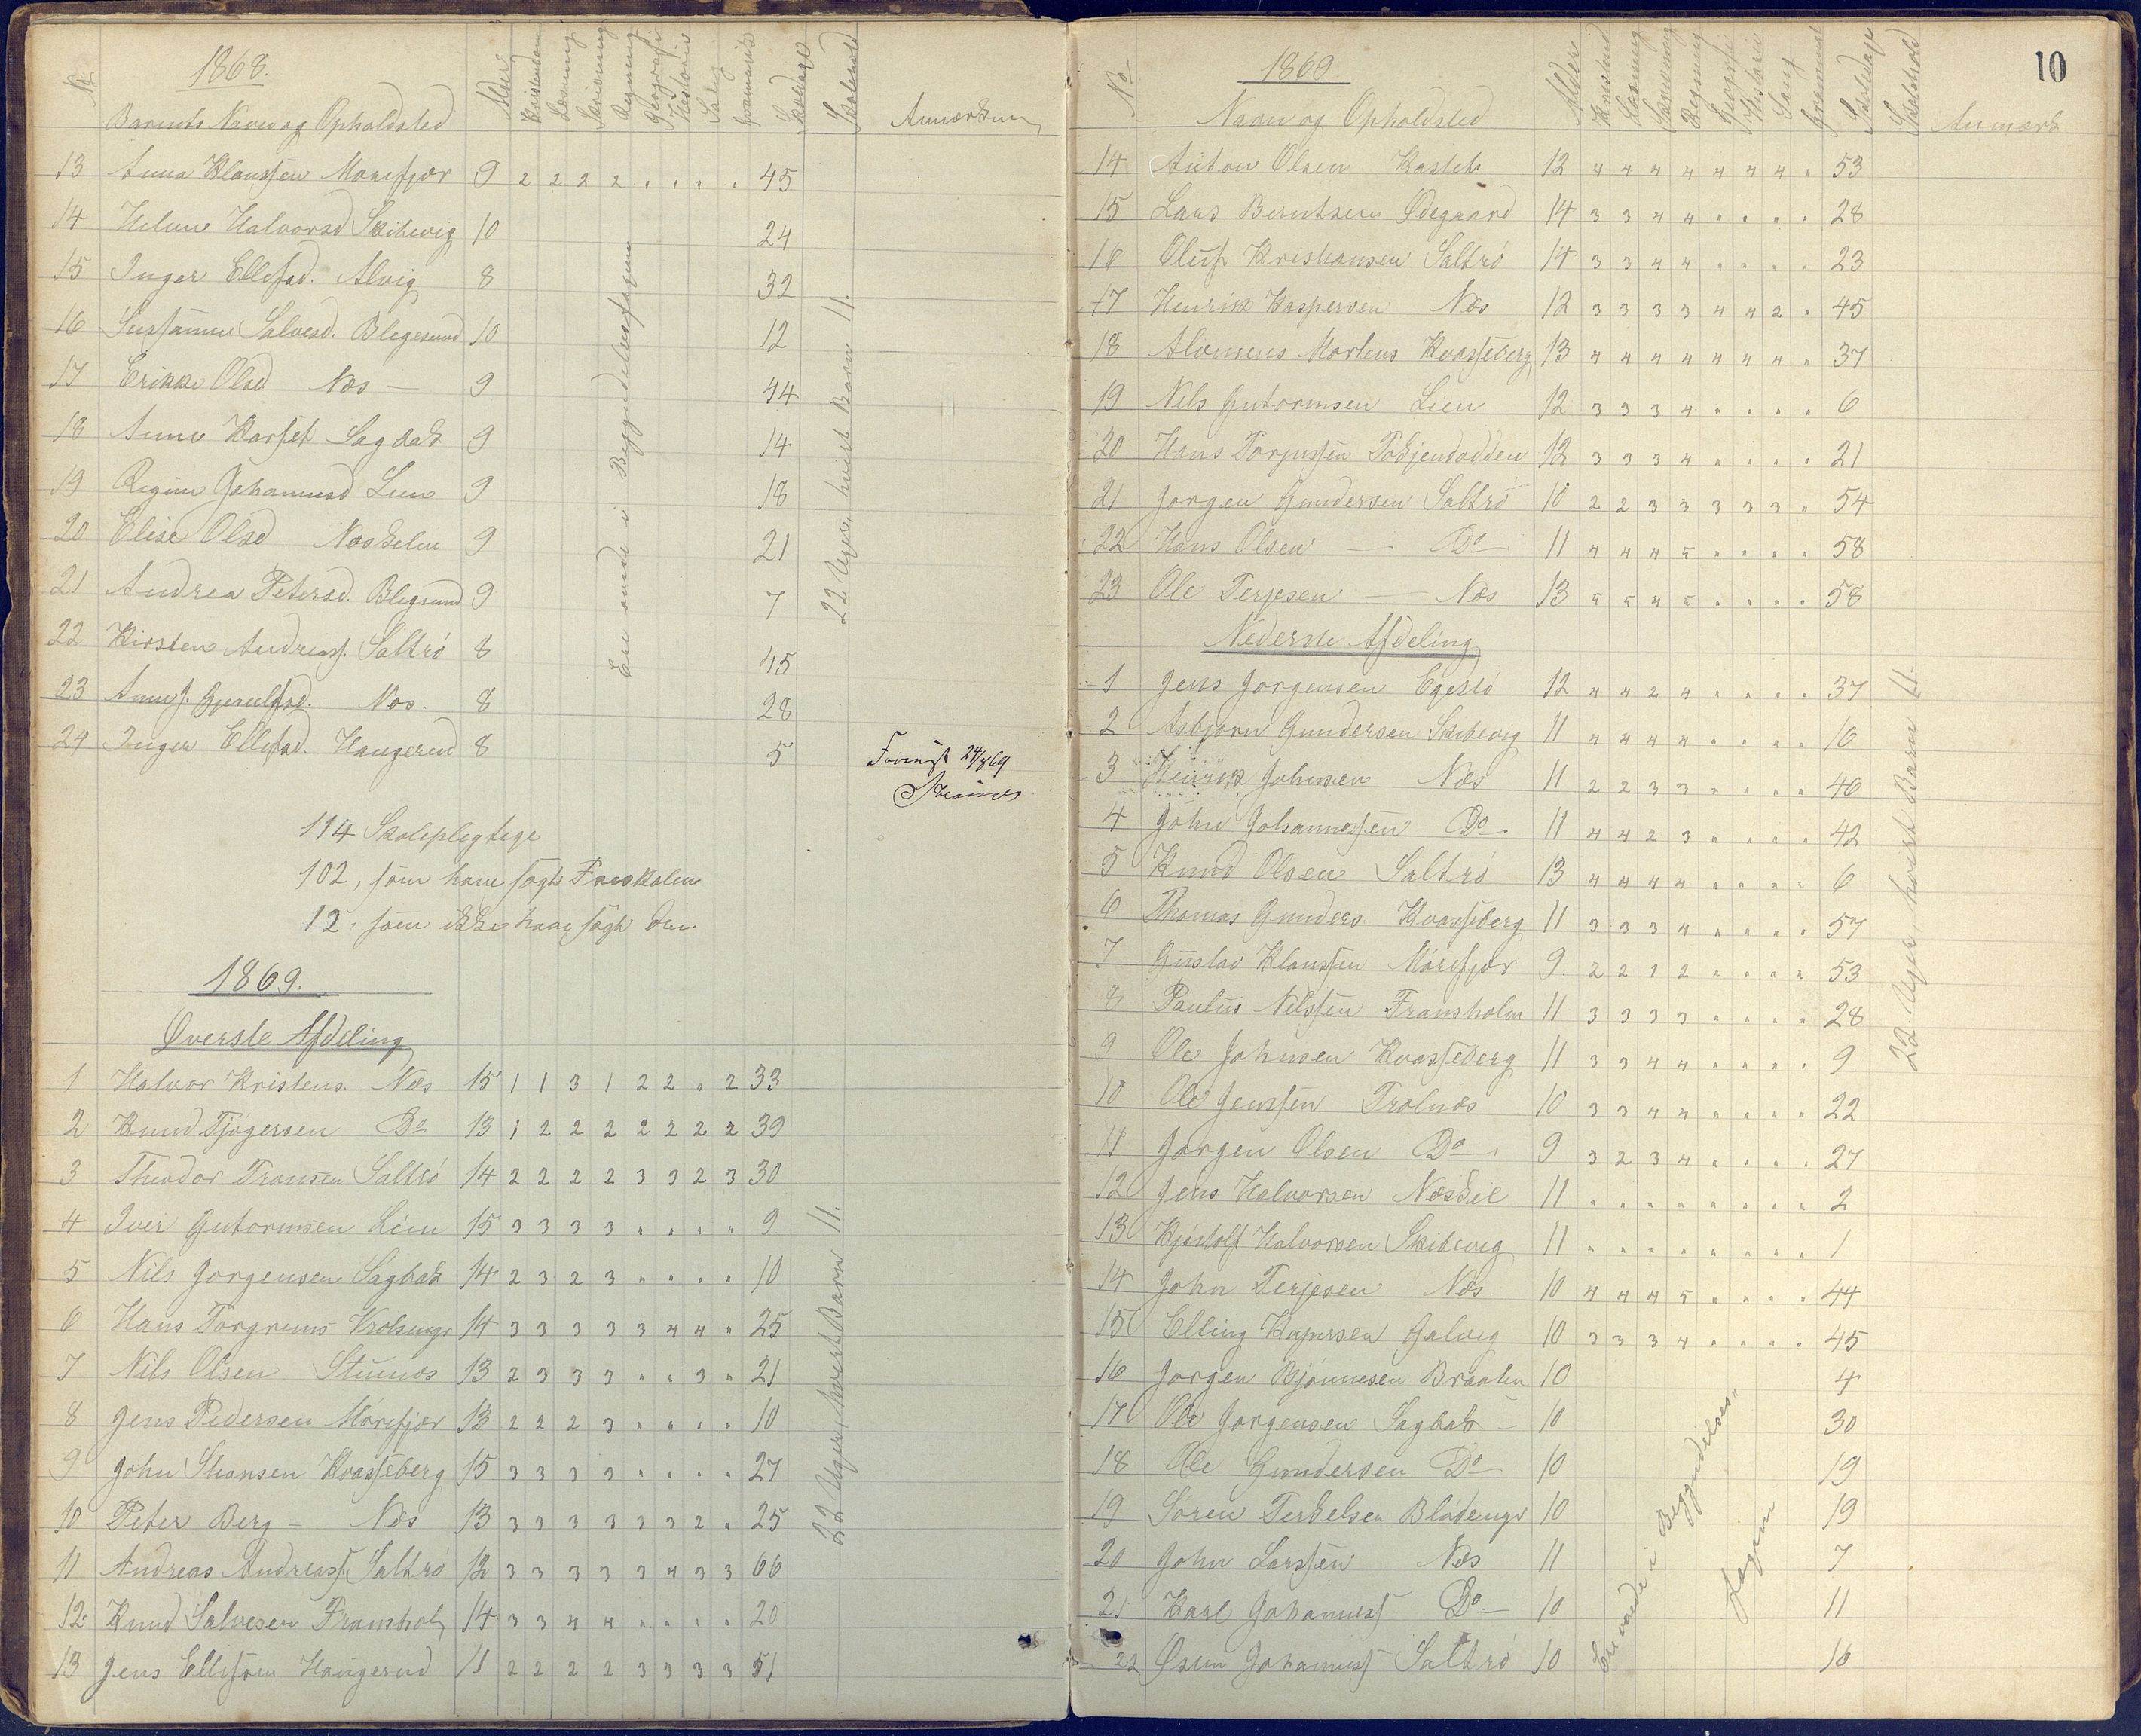 No
1868.
Barnets Navn og Opholdsted
Alder
Kristendom
Læsning
Skrivning
Regning
Geografi
Historie
Sang
Gramatik
Skoledage
Skolehold
Anmærkning
13 Anna Klaussen Morefjær 9 2 2 2 2 " " " " 45
14 Helene Halvorsd Skibevig 10 24
15 Inger Ellefsd. Alvig 8 32
16 Sussanne Salvesd. Blegesund 10 12
17 Erikke Olsd Næs — 9 44
18 Anne Karset Sagbak 9 14
19 Regine Johannesd Lien 9 18
20 Elise Olsd Næskilen 9 21
21 Andrea Petersd. Blegsund 9 7
22 Kirsten Andreasf. Saltrö 8 45
23 Næs. 8 28
24 Inger Ellefsd. Haugerud 8 5
Ere endnu i Begyndelsesfagene
22 Uger, hvert Barn 11.
114 Skolepligtige
102, som have søgt Fastskolen
12, som ikke have søgt den.
1869.
Øverste Afdeling
1 Halvor Kristens. Næs 15 1 1 3 1 2 2 " 2 33
2 Knud Tjøgersen Do 13 1 2 2 2 2 2 2 2 39
3 Theodor Tronsen Saltrö 14 2 2 2 2 3 3 2 3 30
4 Iver Gutormsen Lien 15 3 3 3 3 " " " " 9
5 Nils Jorgensen Sagbak 14 2 3 2 3 " " " " 10
6 Hans Torgrims 14 3 3 3 3 3 4 4 " 25
7 Nils Olsen Stuenæs 13 2 3 3 3 " " 3 " 21
8 Jens Pedersen Mörefjær 13 2 2 2 3 " " " " 10
9 John Khansen Kvasseberg 15 3 3 3 3 " " " " 27
10 Peter Berg — Næs 13 3 3 3 3 3 3 2 " 25
11 Andreas Andreasf. Saltrö 12 3 3 3 3 3 4 3 3 66
12 Knud Salvesen Tromhol 14 3 3 4 4 " " " " 20
13 Jens Ellefsen Haugerud 11 2 2 2 2 3 3 3 3 51
22 Uger, hvert Barn 11.
10
No
1869
Navn og Opholdsted
Alder
Kristend
Læsning
Skrivning
Regning
Geografi
Historie
Sang
Gramatik
Skoledage
Skolehold
Anmærk
14 Anton Olsen Kastet 12 4 4 4 4 4 4 4 " 53
15 Lars Berntsen Ødegaard 14 3 3 4 4 " " " " 28
16 Oluf Kristiansen Saltrö 14 3 3 4 4 " " " " 23
17 Henrik Kaspersen Næs 12 3 3 3 3 4 4 2 " 45
18 Martens Kvasseberg 13 4 4 4 4 4 4 4 " 37
19 Nils Gutormsen Lien 12 3 3 3 4 " " " " 6
20 Hans Torjussen 12 3 3 3 4 " " " " 21
21 Jorgen Gundersen Saltrö 10 2 2 3 3 3 3 3 " 54
22 Hans Olsen — Do 11 4 4 4 5 " " " " 58
23 Ole Terjesen — Næs 13 5 5 4 5 " " " " 58
Nederste Afdeling
1 Jens Jorgensen 12 4 4 2 4 " " " " 37
2 Asbjorn Gundersen Skibevig 11 4 4 4 4 " " " " 10
3 Henrik Johnsen Næs 11 2 2 3 3 " " " " 46
4 John Johannessen Do. 11 4 4 2 3 " " " " 42
5 Knud Olsen Saltrö 13 4 4 4 4 " " " " 6
6 Thomas Gunders Kvasseberg 11 3 3 3 4 " " " " 57
7 Gustav Klaussen Mörefjær 9 2 2 1 2 " " " " 53
8 Paulus Nilssen Tromsholm 11 3 3 3 3 " " " " 28
9 Ole Johnsen Kvasseberg 11 3 3 4 4 " " " " 9
10 Ole Jenssen Trolnæs 10 3 3 4 4 " " " " 22
11 Jorgen Olsen Do 9 3 2 3 4 " " " " 27
12 Jens Halvorsen Næskil 11 " " " " " " " " 2
13 Kjöstolf Halvorsen Skibevig 11 " " " " " " " " 1
14 John Terjesen Næs 10 4 4 4 5 " " " " 44
15 Elling Kaspersen Galvig 10 3 3 3 4 " " " " 45
16 Jorgen Bjönnesen Braaten 10 4
17 Ole Jorgensen Sagbak — 10 30
18 Ole Gundersen Do 10 19
19 Sören Terkelsen 10 19
20 John Larssen Næs 11 7
21 Karl Johannesf Do. 10 11
22 Johannesf Saltrö 10 16
Ere endnu i Begyndelses-
fagene
22 Uger, hvert Barn 11.